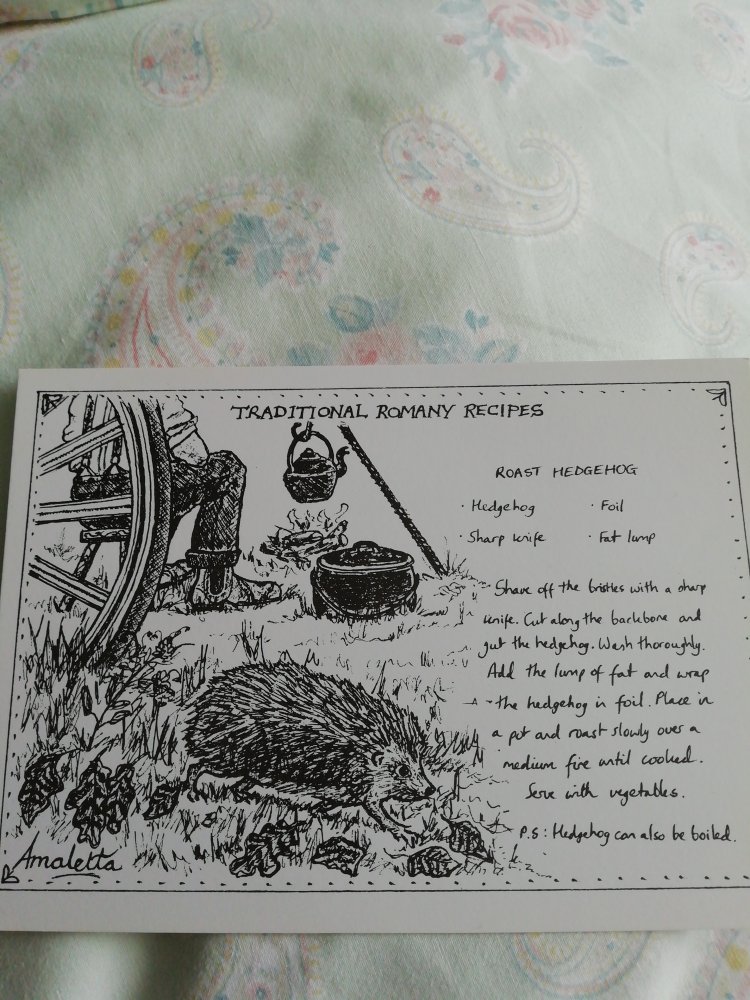 TRADITIONAL ROMANY RECIPES
ROAST HEDGEHOG
· Hedgehog · Foil
· Sharp knife · Fat lump
Shave off the bristles with a sharp
knife. Cut along the backbone and
gut the hedgehog. Wash thoroughly.
Add the lump of fat and wrap
the hedgehog in foil. Place in
a pot and roast slowly over a
medium fire until cooked.
Serve with vegetables.
P.S: Hedgehog can also be boiled.
Amaletta